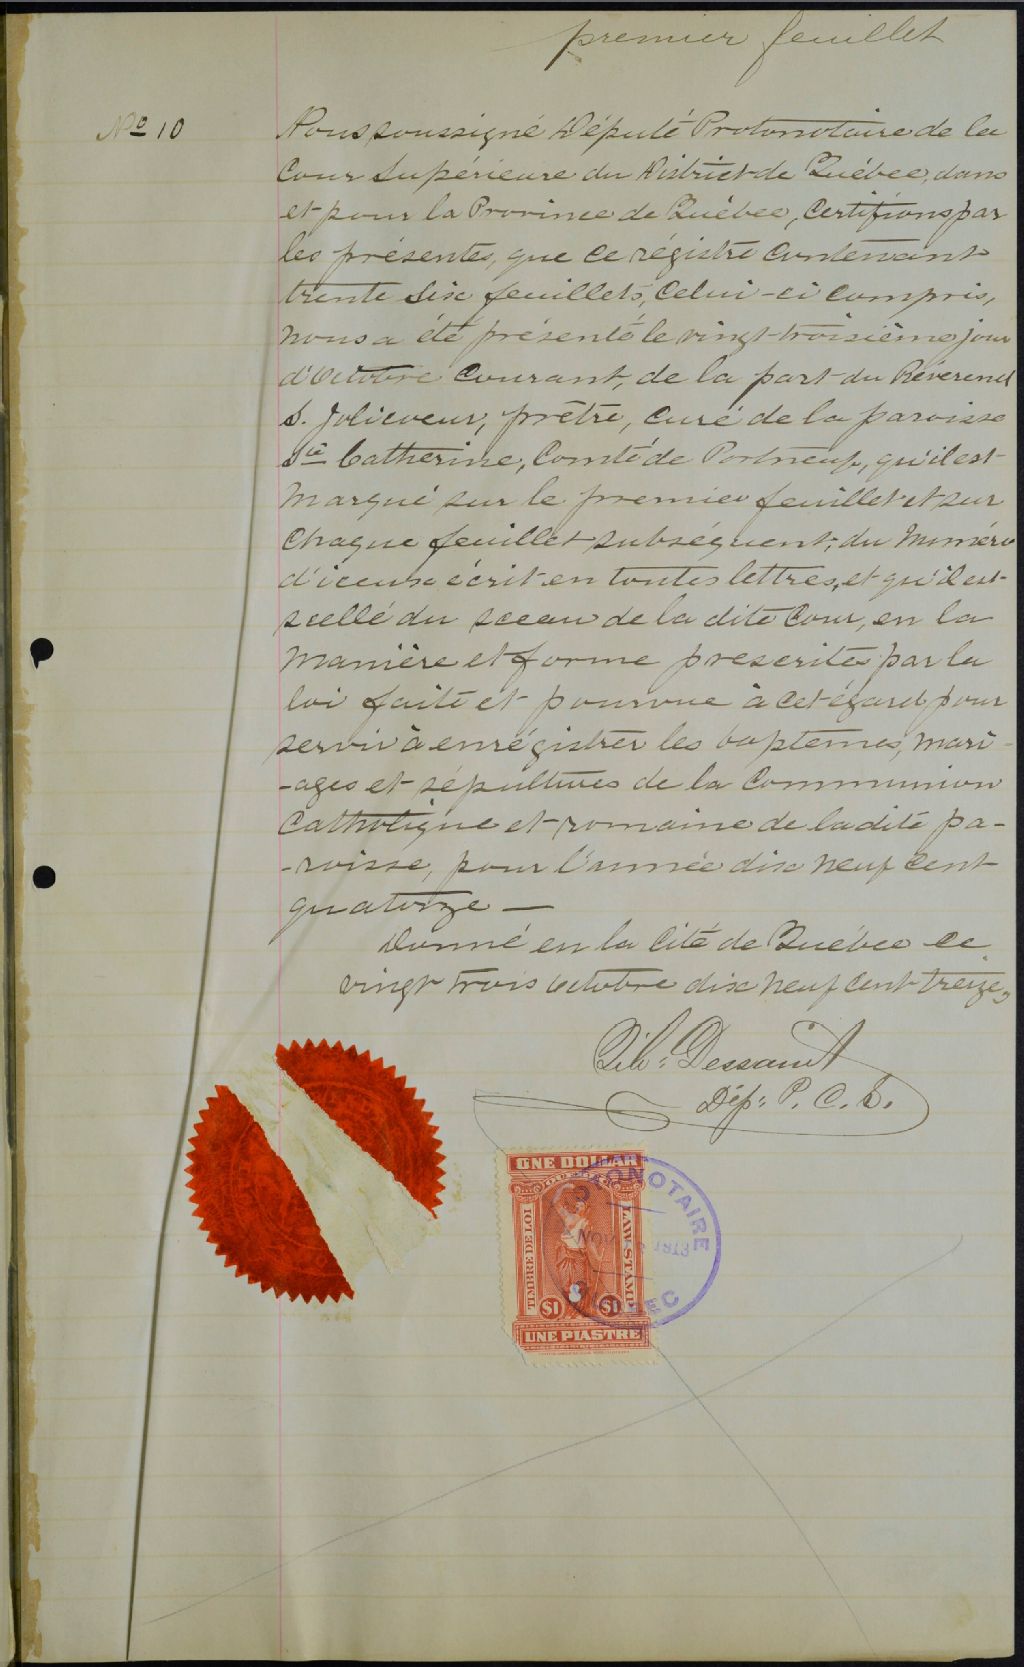 premier feuillet
No 10
Nous, soussigné Député Protonotaire de la
Cour Supérieure du District de Québec, dans
et pour la Province de Québec, Certifions par
les présentes, que ce régistre contenant
trente six feuillets, celui-ci compris,
nous a été présenté le vingt-troisième jour
d'Octobre courant, de la part du Révérend
S. Jolicoeur, prêtre, curé de la paroisse
Ste Catherine, Comté de Portneuf, qu'il est
marqué sur le premier feuillet et sur
chaque feuillet subséquent, du numéro
d'iceux écrit en toutes lettres, et qu'il est
scellé du sceau de la dite Cour, en la
manière et forme prescrites par la
loi faite et pourvue à cet égard pour
servir à enrégistrer les baptêmes, mari-
-ages et sépultures de la Communion
Catholique et romaine de la dite pa-
-roisse, pour l'année dix neuf cent
quatorze —
Donné en la Cité de Québec ce
vingt trois Octobre dix neuf cent treize,
Dessault
Dép: P. C. S.
ONE DOLLAR
TIMBRE DE LOI
LAW STAMP
$1 $1
UNE PIASTRE
NOV